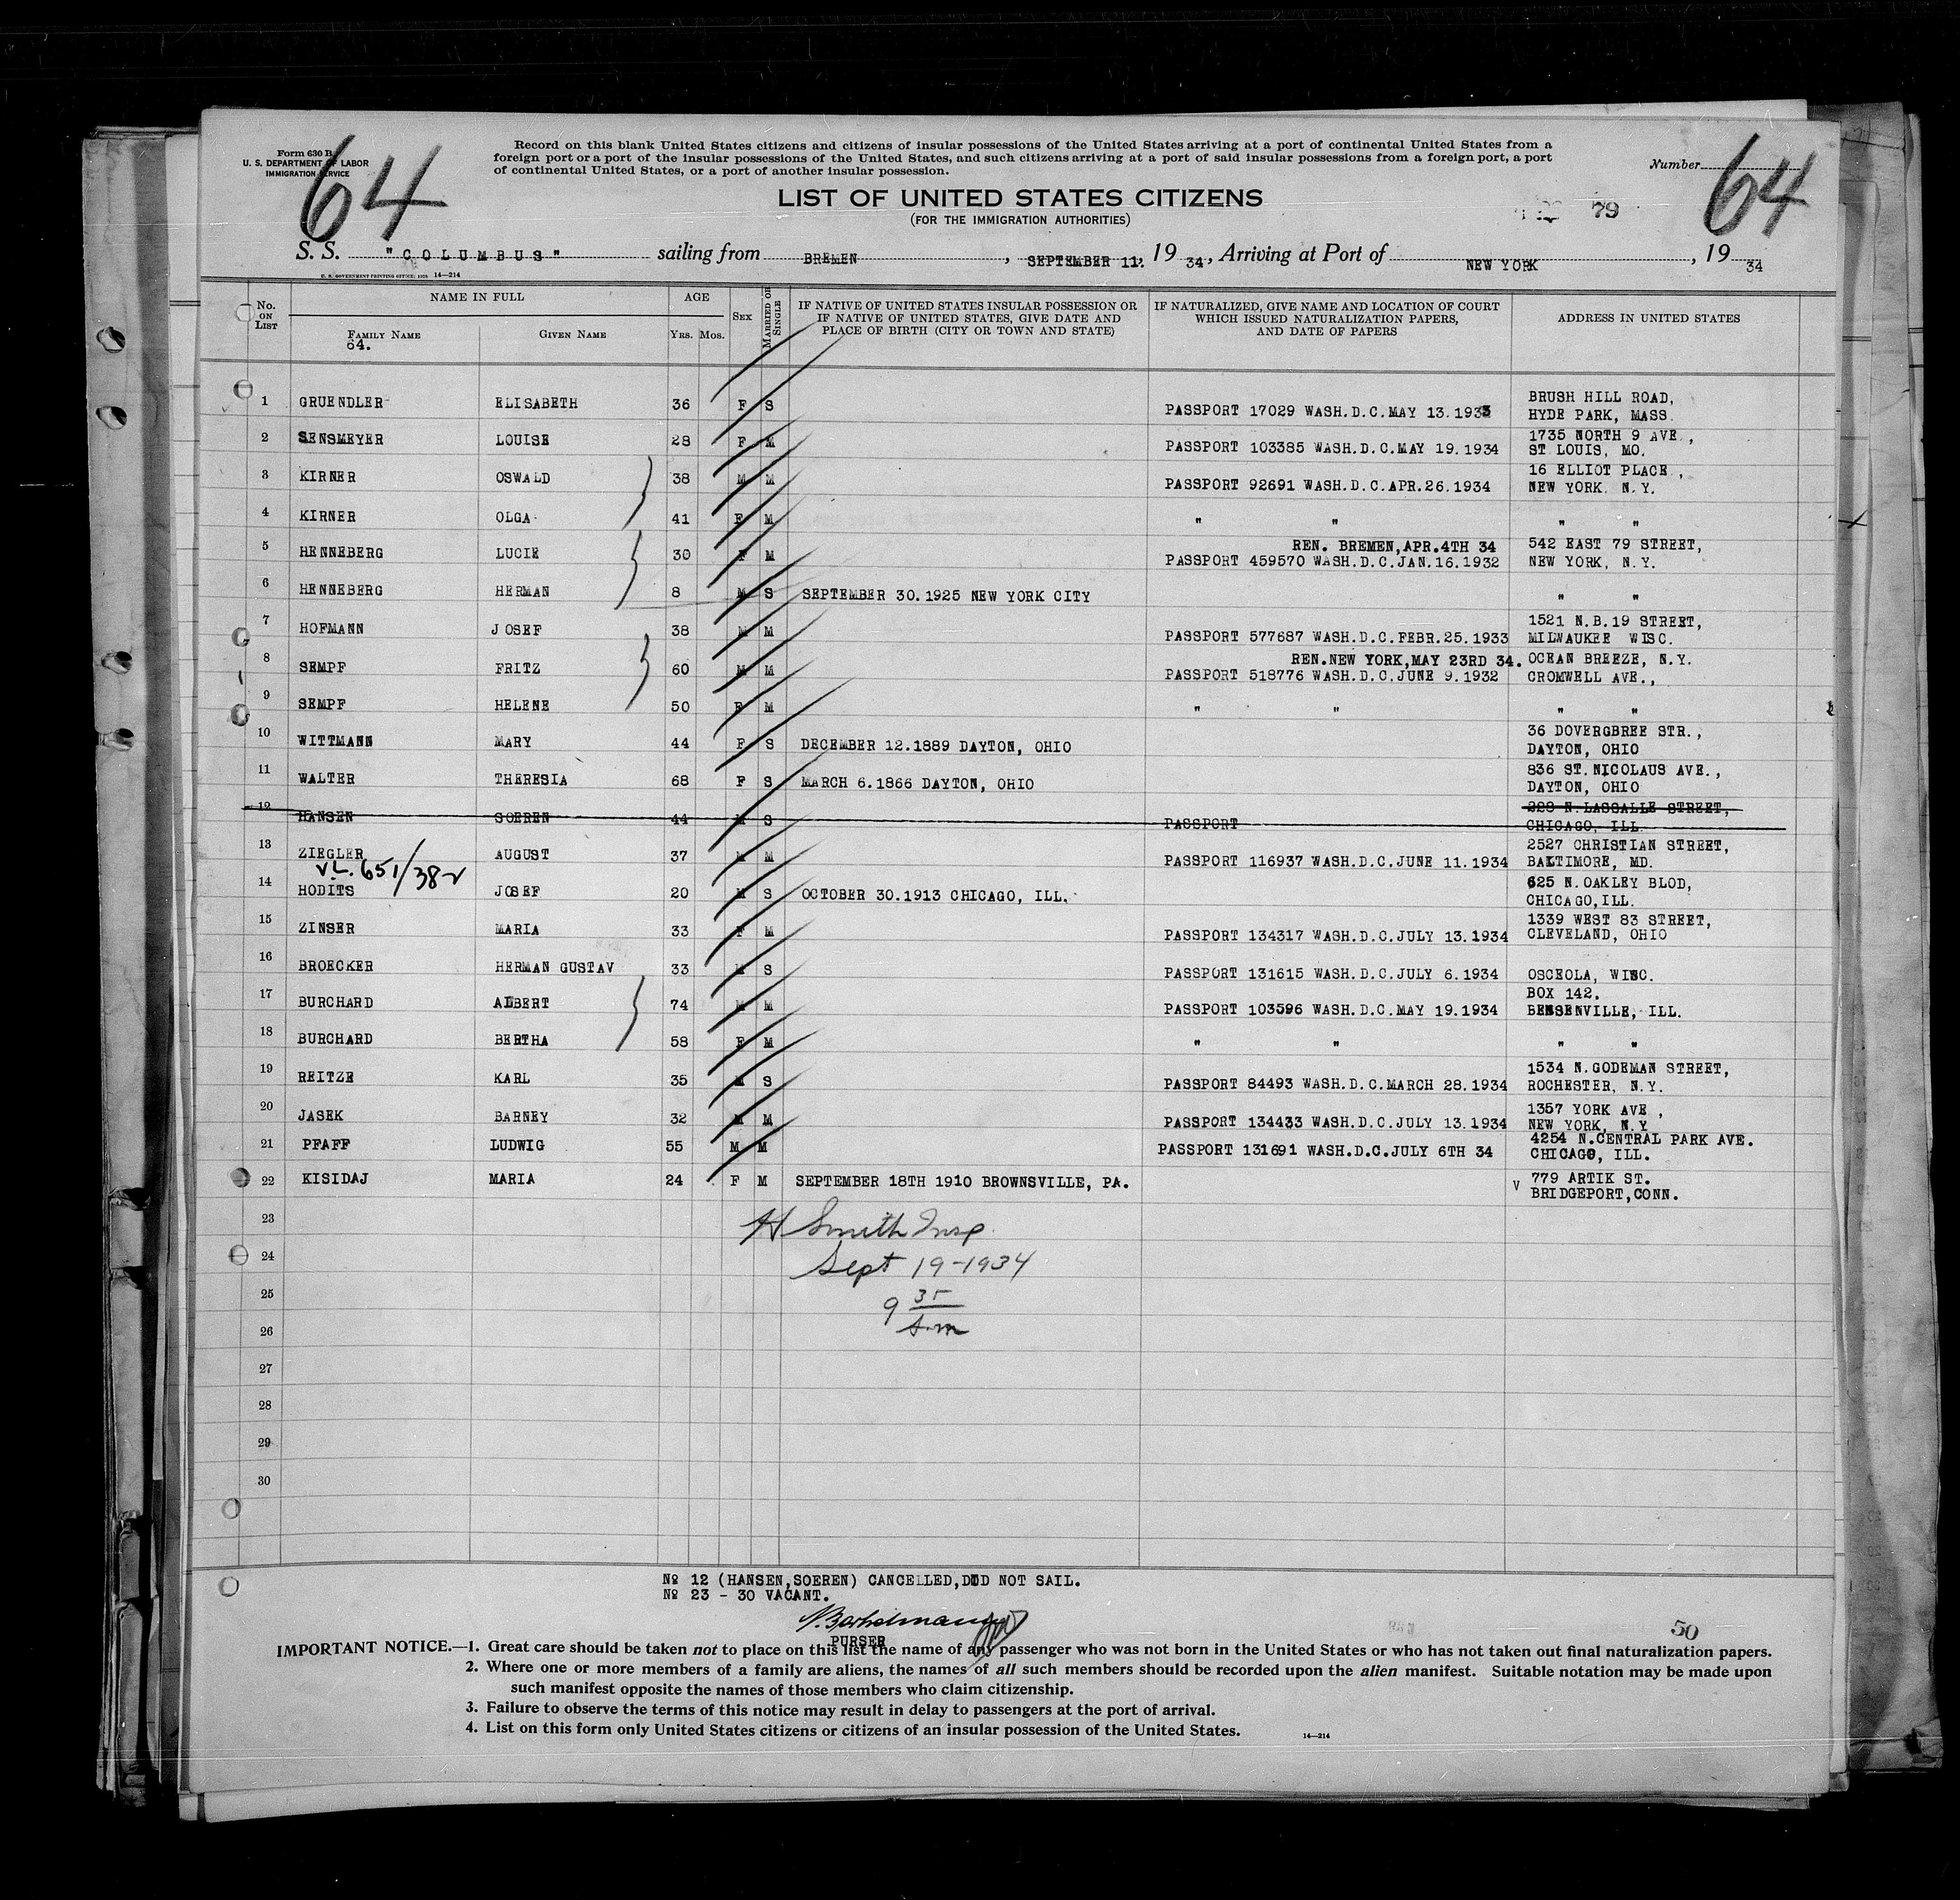 Form 630 B
U. S. DEPARTMENT OF LABOR
IMMIGRATION SERVICE
64
Record on this blank United States citizens and citizens of insular possessions of the United States arriving at a port of continental United States from a
foreign port or a port of the insular possessions of the United States, and such citizens arriving at a port of said insular possessions from a foreign port, a port
of continental United States, or a port of another insular possession.
Number 64
LIST OF UNITED STATES CITIZENS
(FOR THE IMMIGRATION AUTHORITIES)
79
S. S. "COLUMBUS" sailing from BREMEN, SEPTEMBER 11. 1934, Arriving at Port of NEW YORK, 1934
U. S. GOVERNMENT PRINTING OFFICE: 1928 14—214
No. ON LIST NAME IN FULL AGE SEX MARRIED OR SINGLE IF NATIVE OF UNITED STATES INSULAR POSSESSION OR IF NATIVE OF UNITED STATES, GIVE DATE AND PLACE OF BIRTH (CITY OR TOWN AND STATE) IF NATURALIZED, GIVE NAME AND LOCATION OF COURT WHICH ISSUED NATURALIZATION PAPERS, AND DATE OF PAPERS ADDRESS IN UNITED STATES
FAMILY NAME GIVEN NAME YRS. MOS.
64.
1 GRUENDLER ELISABETH 36 F S PASSPORT 17029 WASH.D.C.MAY 13.1933 BRUSH HILL ROAD,
HYDE PARK, MASS.
2 SENSMEYER LOUISE 28 F M PASSPORT 103385 WASH.D.C.MAY 19.1934 1735 NORTH 9 AVE.,
ST LOUIS, MO.
3 KIRNER OSWALD 38 M M PASSPORT 92691 WASH.D.C.APR.26.1934 16 ELLIOT PLACE,
NEW YORK. N.Y.
4 KIRNER OLGA 41 F M " " " "
5 HENNEBERG LUCIE 30 F M REN. BREMEN,APR.4TH 34 542 EAST 79 STREET,
PASSPORT 459570 WASH.D.C.JAN.16.1932 NEW YORK, N.Y.
6 HENNEBERG HERMAN 8 M S SEPTEMBER 30.1925 NEW YORK CITY " "
7 HOFMANN JOSEF 38 M M PASSPORT 577687 WASH.D.C.FEBR.25.1933 1521 N.B.19 STREET,
MILWAUKEE WISC.
8 SEMPF FRITZ 60 M M REN.NEW YORK,MAY 23RD 34. OCEAN BREEZE, N.Y.
PASSPORT 518776 WASH.D.C.JUNE 9.1932 CROMWELL AVE.,
9 SEMPF HELENE 50 F M " " " "
10 WITTMANN MARY 44 F S DECEMBER 12.1889 DAYTON, OHIO 36 DOVERGBREE STR.,
DAYTON, OHIO
11 WALTER THERESIA 68 F S MARCH 6.1866 DAYTON, OHIO 836 ST.NICOLAUS AVE.,
DAYTON, OHIO
12 HANSEN SOEREN 44 M S PASSPORT N. LASSALLE STREET,
CHICAGO, ILL
13 ZIEGLER AUGUST 37 M M PASSPORT 116937 WASH.D.C.JUNE 11.1934 2527 CHRISTIAN STREET,
BALTIMORE, MD.
VL. 651/38
14 HODITS JOSEF 20 M S OCTOBER 30.1913 CHICAGO, ILL. 625 N.OAKLEY BLOD,
CHICAGO,ILL.
15 ZINSER MARIA 33 F M PASSPORT 134317 WASH.D.C.JULY 13.1934 1339 WEST 83 STREET,
CLEVELAND, OHIO
16 BROECKER HERMAN GUSTAV 33 M S PASSPORT 131615 WASH.D.C.JULY 6.1934 OSCEOLA, WISC.
17 BURCHARD ALBERT 74 M M PASSPORT 103596 WASH.D.C.MAY 19.1934 BOX 142.
BENSENVILLE, ILL.
18 BURCHARD BERTHA 58 F M " " " "
19 REITZE KARL 35 M S PASSPORT 84493 WASH.D.C.MARCH 28.1934 1534 N.GODEMAN STREET,
ROCHESTER, N.Y.
20 JASEK BARNEY 32 M M PASSPORT 134433 WASH.D.C.JULY 13.1934 1357 YORK AVE,
NEW YORK, N.Y
21 PFAFF LUDWIG 55 M M PASSPORT 131691 WASH.D.C.JULY 6TH 34 4254 N.CENTRAL PARK AVE.
CHICAGO, ILL.
22 KISIDAJ MARIA 24 F M SEPTEMBER 18TH 1910 BROWNSVILLE, PA. V 779 ARTIK ST.
BRIDGEPORT,CONN.
23 H Smith Insp.
24 Sept 19-1934
25 9 35
26 A.m
27
28
29
30
№ 12 (HANSEN,SOEREN) CANCELLED,DID NOT SAIL.
№ 23 - 30 VACANT.
PURSER
50
IMPORTANT NOTICE.—1. Great care should be taken not to place on this list the name of any passenger who was not born in the United States or who has not taken out final naturalization papers.
2. Where one or more members of a family are aliens, the names of all such members should be recorded upon the alien manifest. Suitable notation may be made upon
such manifest opposite the names of those members who claim citizenship.
3. Failure to observe the terms of this notice may result in delay to passengers at the port of arrival.
4. List on this form only United States citizens or citizens of an insular possession of the United States.
14—214